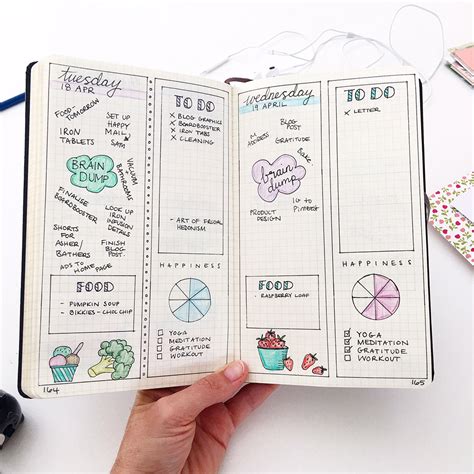 tuesday
18 APR
FOOD
TOMORROW
SET UP
HAPPY
MAIL
IRON
TABLETS
SATM
BRAIN
DUMP
VACUUM
+
BATHROOMS
FINALISE
BOARDBOOSTER
LOOK UP
IRON
INFUSION
DETAILS
SHORTS
FOR
ASHER/
BATHERS
FINISH
BLOG
POST
ADS TO HOME PAGE
FOOD
- PUMPKIN SOUP
- BIKKIES - CHOC CHIP
164
TO DO
x BLOG GRAPHICS
x BOARDBOOSTER
x IRON TABS
x CLEANING
- ART OF FRUGAL
HEDONISM
HAPPINESS
YOGA
MEDITATION
GRATITUDE
WORKOUT
wednesday
19 APRIL
ADDRESS
BLOG
POST
GRATITUDE
Bake
brain
dump
PRODUCT
DESIGN
IG to
Pinterest
FOOD
- RASPBERRY LOAF
TO DO
x LETTER
HAPPINESS
YOGA
MEDITATION
GRATITUDE
WORKOUT
165